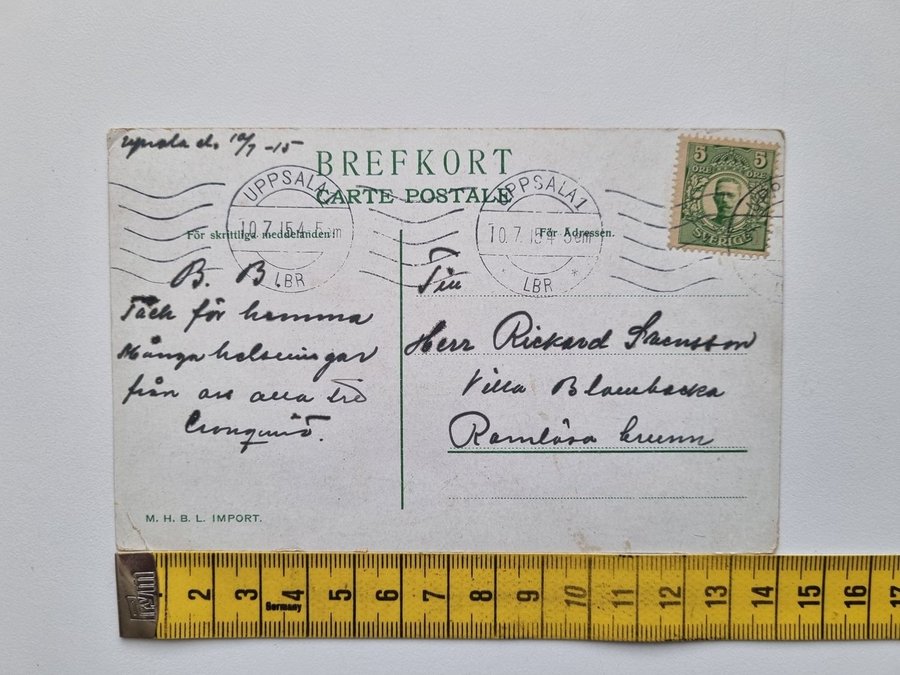 Upsala d. 10/7 -15
BREFKORT
CARTE POSTALE
UPPSALA 1
10.7.15 4-5 em
LBR
UPPSALA 1
10.7.15 4-5 em
LBR
5 5
ÖRE ÖRE
SVERIGE
För skriftliga meddelanden.
B. B.
Tack för hemma
Många helsningar
från oss alla tre
Cronquist.
För Adressen.
Till
Herr Rickard Svensson
Villa Blombacka
Ramlösa brunn
M. H. B. L. IMPORT.
2 3 4 5 6 7 8 9 10 11 12 13 14 15 16 17
Germany